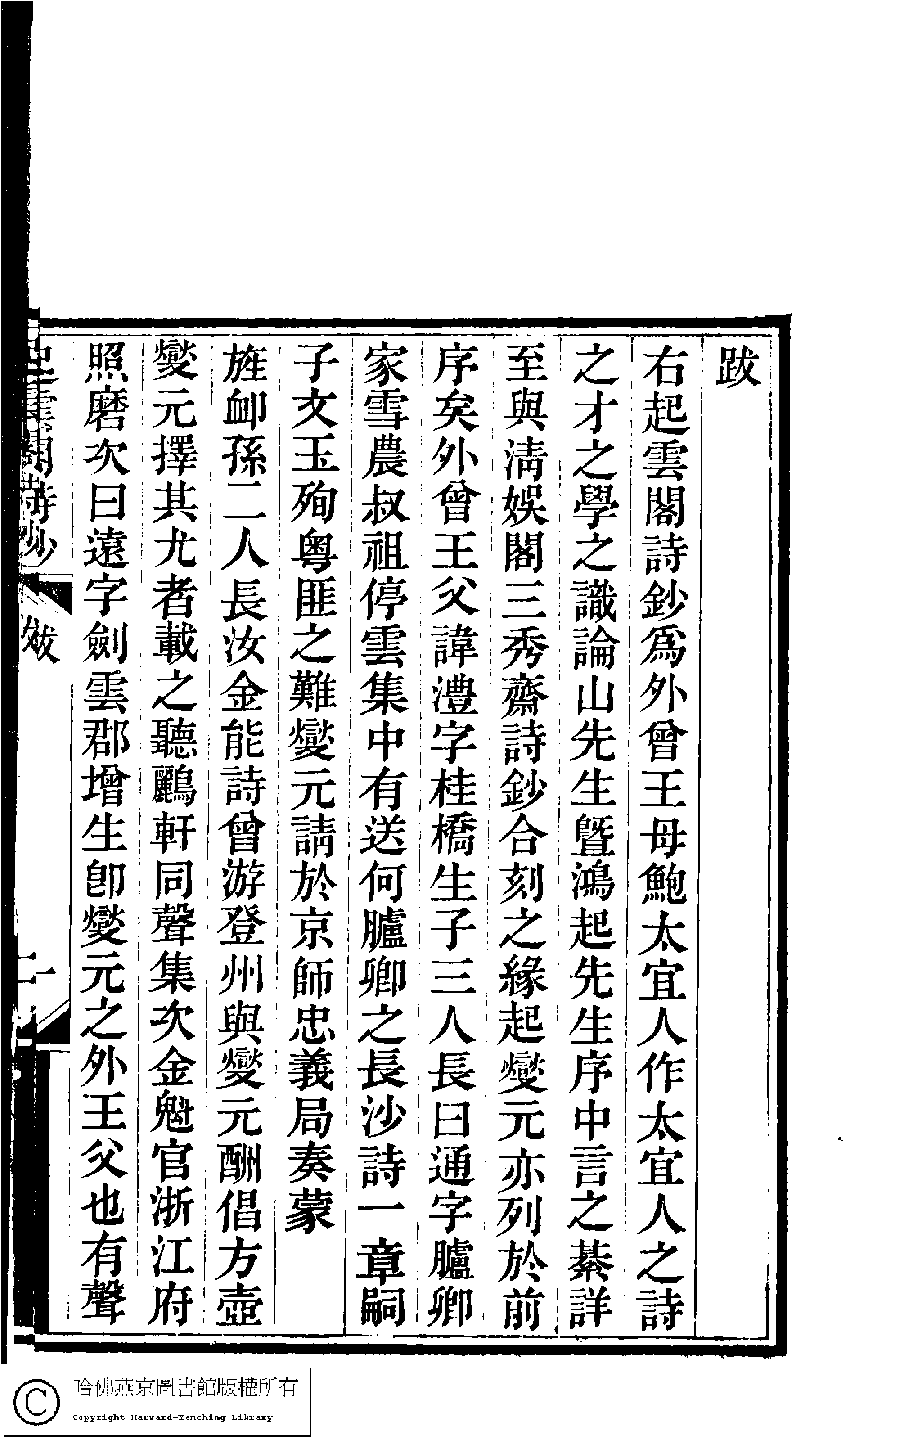 跋
右起雲閣詩鈔爲外曾王母鮑太宜人作太宜人之詩
之才之學之識論山先生曁鴻起先生序中言之綦詳
至與淸娛閣三秀齋詩鈔合刻之緣起燮元亦列於前
序矣外曾王父諱澧字桂橋生子三人長曰通字臚卿
家雪農叔祖停雲集中有送何臚卿之長沙詩一章嗣
子文玉殉粤匪之難燮元請於京師忠義局奏蒙
旌卹孫二人長汝金能詩曾游登州與燮元酬倡方壺
燮元擇其尤者載之聽鸝軒同聲集次金魁官浙江府
照磨次曰遠字劍雲郡增生卽燮元之外王父也有聲
起雲閣詩鈔
跋
二
哈佛燕京圖書館版權所有
Copyright Harvard-Yenching Library